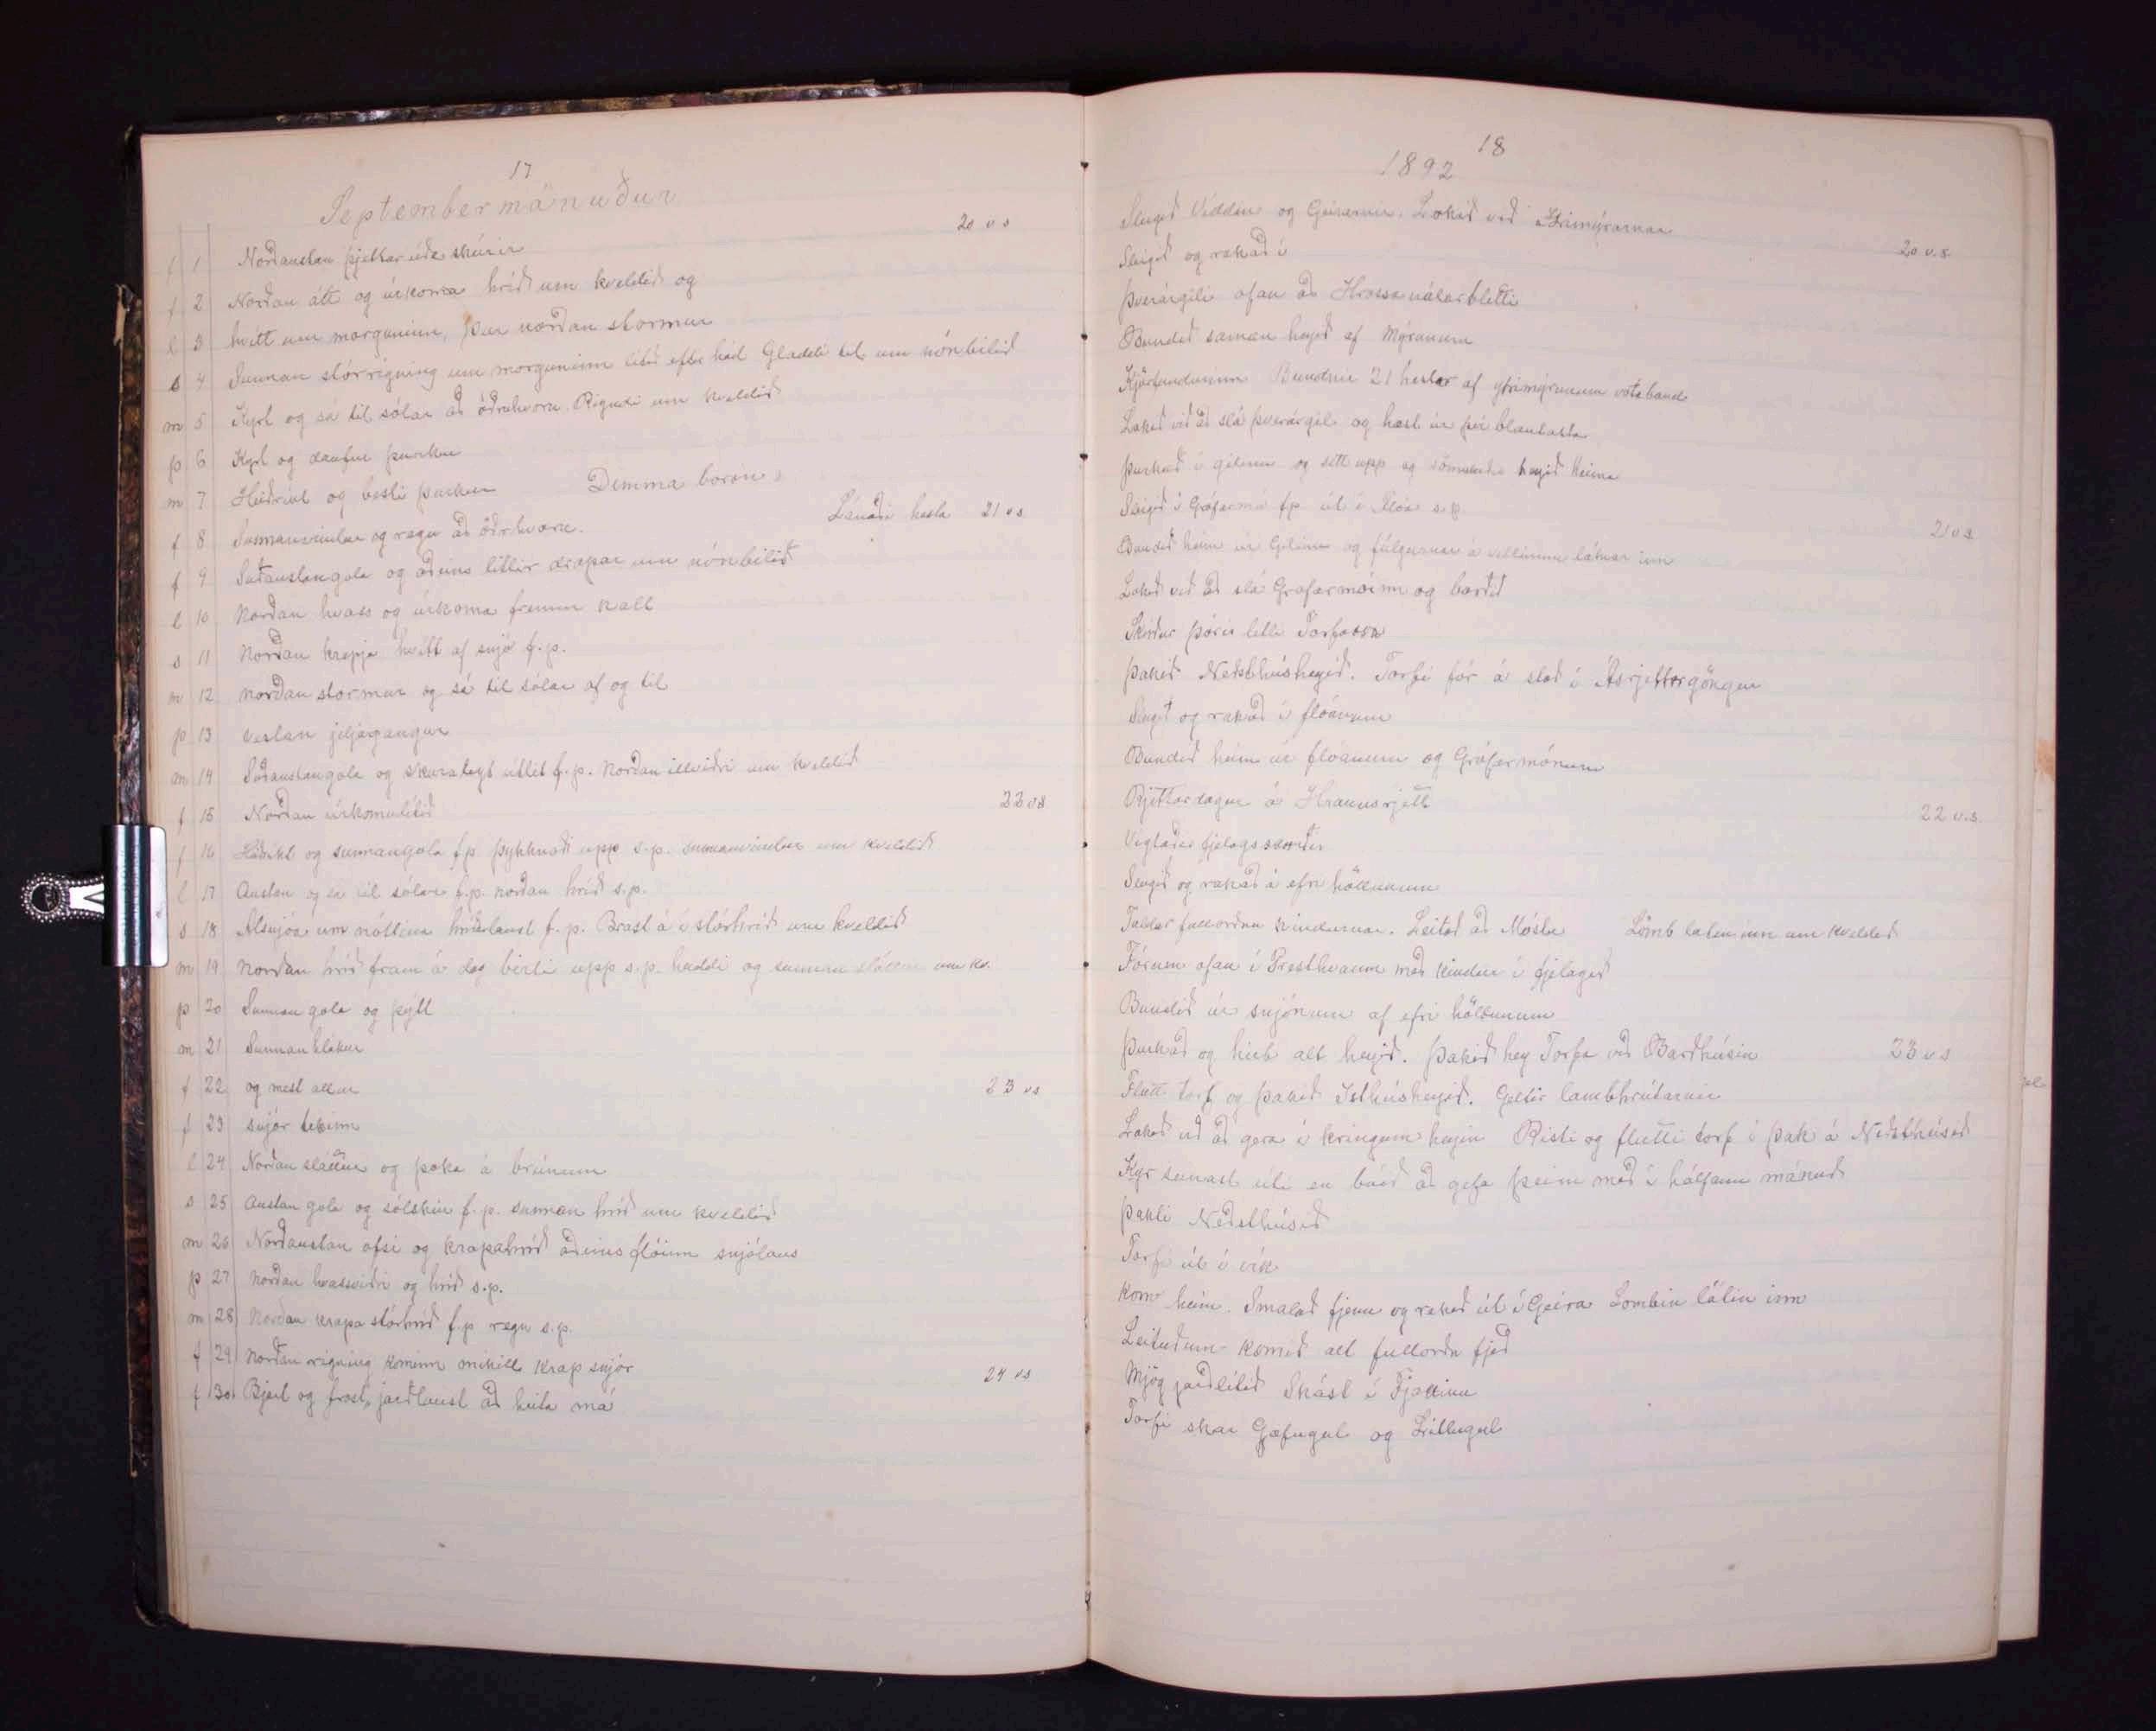 17
Septembermánuður
20 v s
f 1 Norðaustan þjettar úða skúrir
f 2 Norðan átt og úrkoma hríð um kveldið og
l 3 hvítt um morguninn, þur norðan stormur
s 4 Sunnan stórrigning um morguninn lítið eftir háð Gladdi til um nónbilið
m 5 Kyrt og sá til sólar að öðruhvoru. Rigndi um kveldið
þ 6 Kyrt og daufur þurkur
m 7 Heiðríkt og besti þurkur Dimma borin
f 8 Sunnanvindur og regn að öðrhvoru. Lánaði hesta 21 v s
f 9 Suðaustangola og aðeins litlir dropar um nónbilið
l 10 Norðan hvass og úrkoma fremur kalt
s 11 Norðan krepja hvítt af snjó f.p.
m 12 norðan stormur og sá til sólar af og til
þ 13 vestan jeljagangur
m 14 Suðaustangola og skuralegt útlit f.p. Norðan illviðri um kveldið
f 15 Norðan úrkomulítið 22 v s
f 16 Heiðríkt og sunnangola f.p. þykknaði upp s.p. sunnanvindur um kveldið
l 17 Austan og sá til sólar f.p. norðan hríð s.p.
s 18 Alsnjóa um nóttina hríðlaust f.p. Brast á í stórhríð um kveldið
m 19 Norðan hríð fram á dag birti upp s.p. kaldi og sunnan um kv.
þ 20 Sunnan gola og þýtt
m 21 Sunnan hlákur
f 22 og mest allur 23 v s
f 23 snjór tekinn
l 24 Norðan slattur og þoka á brúnum
s 25 Austan gola og sólskin f.p. sunnan hríð um kveldið
m 26 Norðaustan ofsi og krapahríð aðeins flóinn snjólaus
þ 27 Norðan hvassviðri og hríð s.p.
m 28 Norðan krapa stórhríð f.p regn s.p.
f 29 Norðan rigning kominn mikill krap snjór
24 v s
f 30 Bjart og frost, jarðlaust að heita má
18
1892
Slegið Víddin og Geirarnir. Lokið við Ytrimýrarnar
Slegið og rakað í 20 v.s.
Þverárgili ofan að Hrossanálarbletti
Bundið saman heyið af Mýrunum
Kjörfundurinn Bundnir 21 hestar af ytrimýrunum votaband
Lokið við að slá þverárgil og hest úr því blautasta
þurkað í gilinu og sett upp og heyið heima
Slegið í Grófarmó f.p. út í Flóa s.p.
Bundið heim úr Gilinu og fúlgurnar á vellinum látnar inn 21 v s
Lokið við að slá Grófarmóinn og barðið
Skírður þórir litli Torfason
þakið Neðsthúsheyið. Torfi fór á stað í Ásrjettargöngur
Slegið og rakað í flóanum
Bundið heim úr flóanum og Grófarmónum
Rjettardagur á Hraunsrjett 22 v.s.
Vigtaðir fjelagssauðir
Slegið og rakað á efri höllunum
Taldar fullorðnu kindurnar. Leitað að Mósu Lömb látin inn um kveldið
Fórum ofan í Presthvamm með kindur í fjelagið
Bundið úr snjónum af efri höllunum
þurkað og hirt alt heyið. þakið hey Torfa við Barðhúsin 23 v s
Flutt torf og þakið Ysthúsheyið. Geltir lambhrútarnir
Lokið við að gera í kringum heyin Risti og flutti torf í þak á Neðsthúsið
Kýr seinast úti en búið að gefa þeim með í hálfann mánuð
þakti Neðsthúsið
Torfi út í vík
kom heim. Smalað fjenu og rekið út í Geira Lombin látin inn
Leituðum komið alt fullorðn fjeð
Mjög jarðlítið Skást í Fjallinu
Torfi skar Gæfugul og Litlugul